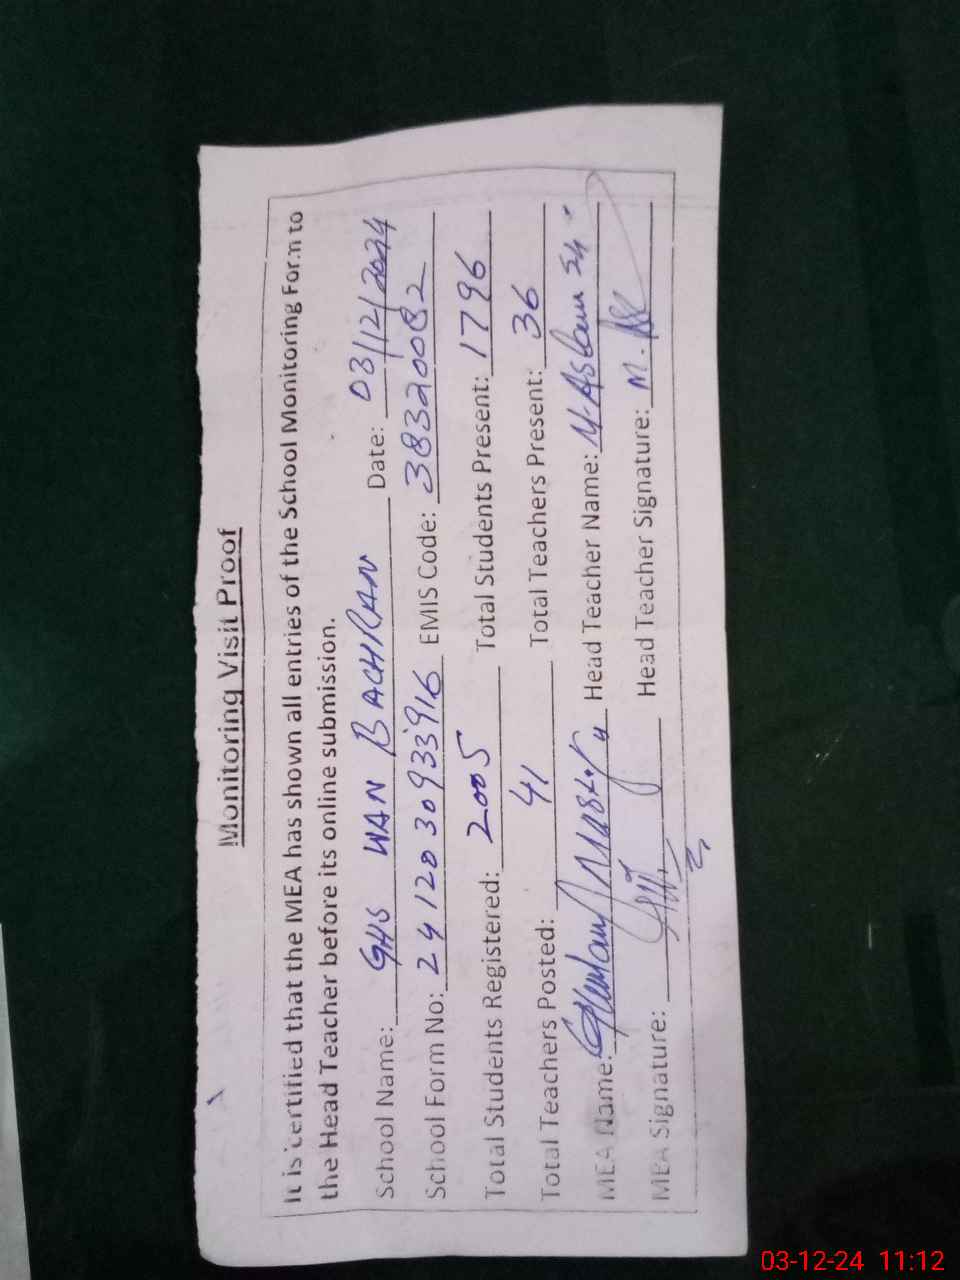 Monitoring Visit Proof
It is certified that the MEA has shown all entries of the School Monitoring Form to
the Head Teacher before its online submission.
School Name: GHS WAN BACHRAN Date: 03/12/2024
School Form No: 2412030933916 EMIS Code: 38320082
Total Students Registered: 2005 Total Students Present: 1796
Total Teachers Posted: 41 Total Teachers Present: 36
MEA Name: Head Teacher Name: M. Aslam
MEA Signature: Head Teacher Signature: M.
03-12-24 11:12